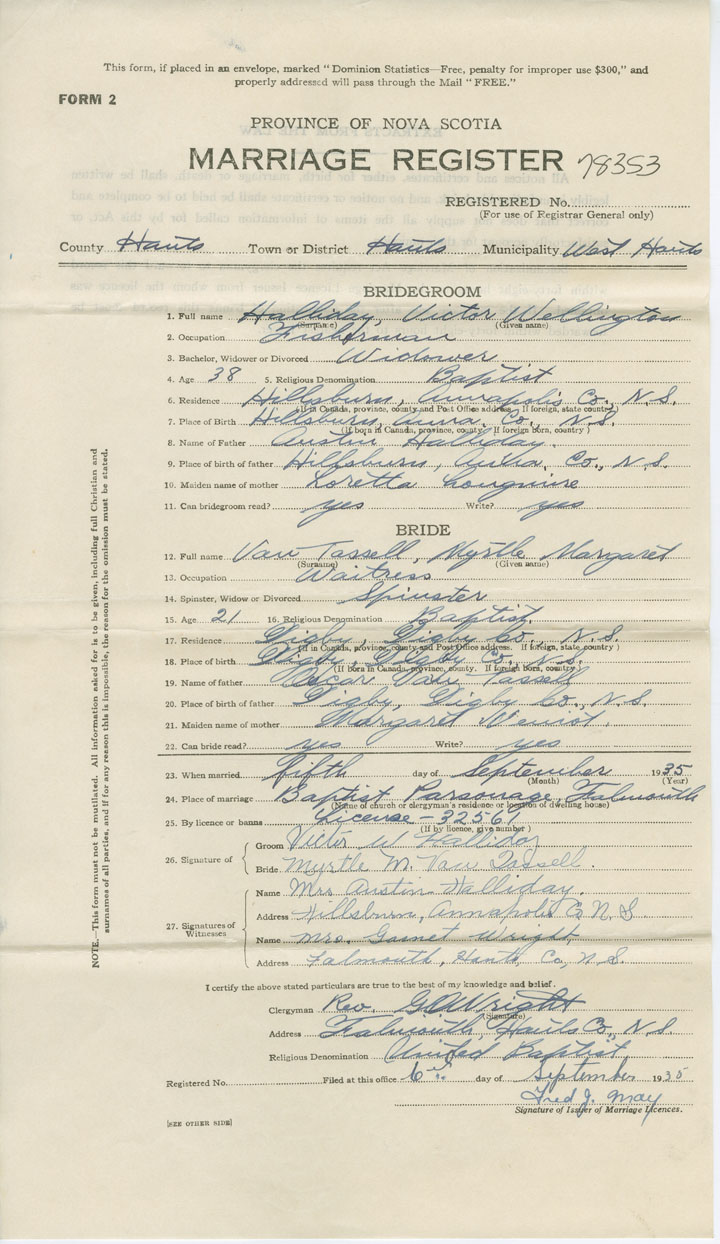 This form, if placed in an envelope, marked "Dominion Statistics—Free, penalty for improper use $300," and
properly addressed will pass through the Mail "FREE."
FORM 2
PROVINCE OF NOVA SCOTIA
MARRIAGE REGISTER 78353
REGISTERED No.
(For use of Registrar General only)
County Hants Town or District Hants Municipality West Hants
BRIDEGROOM
1. Full name Halliday, Victor Wellington
(Surname) (Given name)
2. Occupation Fisherman
3. Bachelor, Widower or Divorced Widower
4. Age 38 5. Religious Denomination Baptist
6. Residence Hillsburn, Annapolis Co., N.S.
(If in Canada, province, county and Post Office address. If foreign, state country)
7. Place of Birth Hillsburn, Anna. Co., N.S.
(If born in Canada, province, county. If foreign born, country)
8. Name of Father Austin Halliday
9. Place of birth of father Hillsburn, Co., N.S.
10. Maiden name of mother Loretta Longmire
11. Can bridegroom read? yes Write? yes
BRIDE
12. Full name Van Tassell, Myrtle Margaret
(Surname) (Given name)
13. Occupation Waitress
14. Spinster, Widow or Divorced Spinster
15. Age 21 16. Religious Denomination Baptist
17. Residence Digby, Digby Co., N.S.
(If in Canada, province, county and Post Office address. If foreign, state country)
18. Place of birth Digby, Digby Co., N.S.
(If born in Canada, province, county. If foreign born, country)
19. Name of father Oscar Van Tassell
20. Place of birth of father Digby, Digby Co., N.S.
21. Maiden name of mother Margaret
22. Can bride read? yes Write? yes
23. When married fifth day of September 1935
(Month) (Year)
24. Place of marriage Baptist Parsonage, Falmouth
(Name of church or clergyman's residence or location of dwelling house)
25. By licence or banns License - 32561
(If by licence, give number)
26. Signature of
Groom Victor W Halliday
Bride Myrtle M. Van Tassell.
27. Signatures of Witnesses
Name Mrs Austin Halliday.
Address Hillsburn, Annapolis Co N.S
Name Mrs. Garnet Wright
Address Falmouth, Hants Co, N.S.
I certify the above stated particulars are true to the best of my knowledge and belief.
Clergyman Rev. G A Wright
(Signature)
Address Falmouth, Hants Co, N.S
Religious Denomination United Baptist
Registered No. Filed at this office 6th day of September 1935
Fred J. May
Signature of Issuer of Marriage Licences.
[SEE OTHER SIDE]
NOTE.—This form must not be mutilated. All information asked for is to be given, including full Christian and
surnames of all parties, and if for any reason this is impossible, the reason for the omission must be stated.